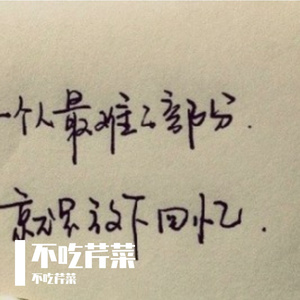 一个人最难的部分.
就是放下回忆.
不吃芹菜
不吃芹菜